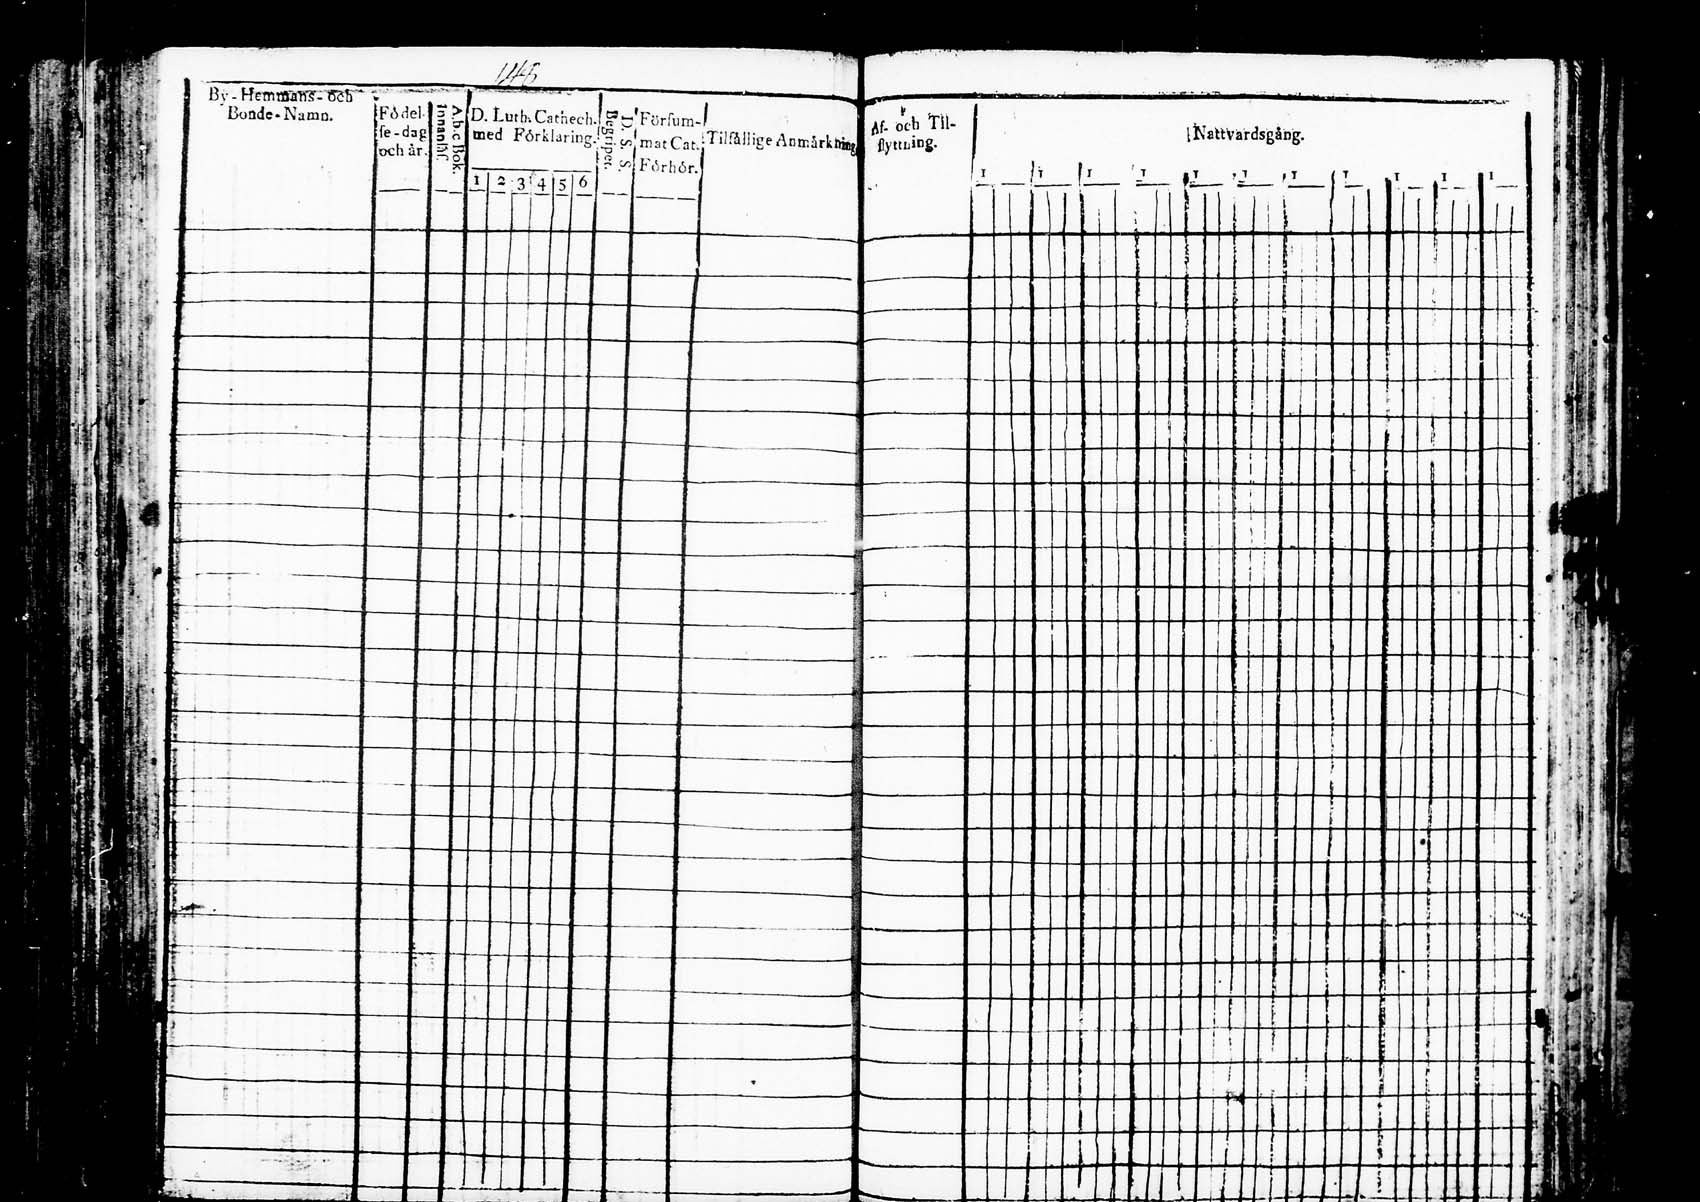 146
By-Hemmans- och
Bonde-Namn.
Födel-
se-dag
och år.
A.b.c Bok.
Innanläs.
D. Luth. Cathech.
med Förklaring.
1 2 3 4 5 6
D. S. S.
Begriper.
Försum-
mat Cat.
Förhör.
Tilfällige Anmärkning
Af- och Til-
flyttning.
Nattvardsgång.
1 1 1 1 1 1 1 1 1 1 1